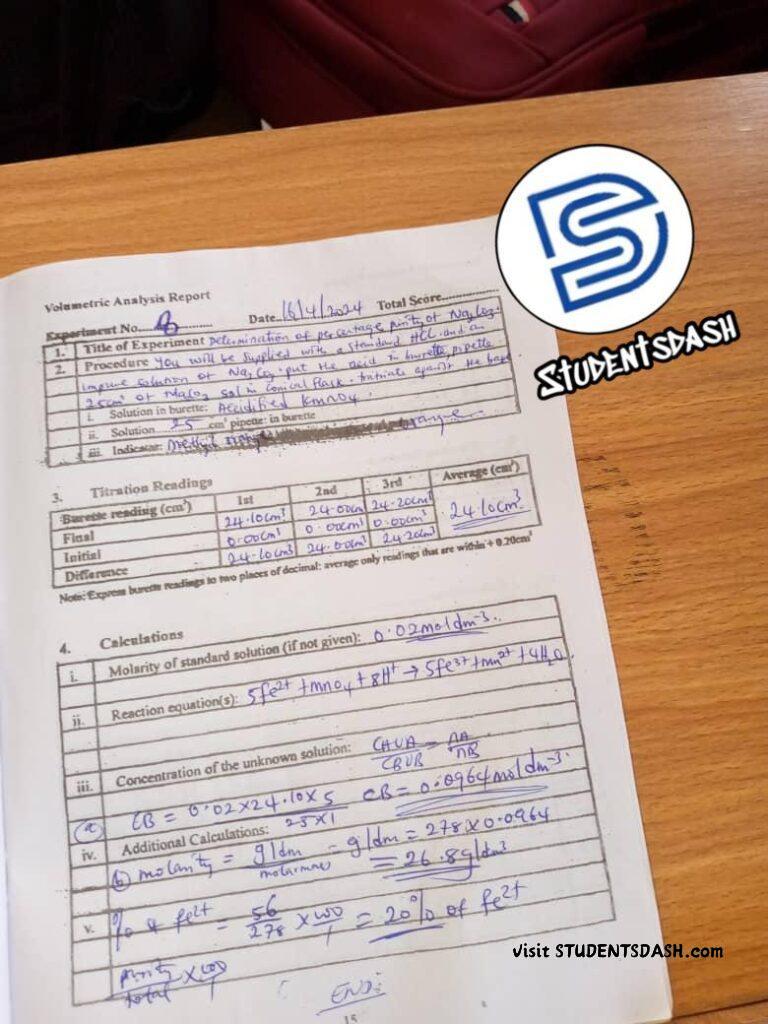 STUDENTSDASH
Volumetric Analysis Report
Experiment No. 8 Date. 16/4/2024 Total Score
1. Title of Experiment Determination of percentage purity of Na2CO3.
2. Procedure You will be supplied with a standard HCl and an
impure solution of Na2CO3. put the acid in burette, pipette
25cm³ of Na2CO3 sol in conical flask. titrate against the base
i. Solution in burette: Accidified KmnO4.
ii. Solution 25 cm³ pipette: in burette
iii. Indicator: methyl orange
3. Titration Readings
Burette reading (cm³) 1st 2nd 3rd Average (cm³)
Final 24.10cm³ 24.00cm 24.20cm³ 24.10cm³
Initial 0.00cm³ 0.00cm³ 0.00cm³
Difference 24.10cm³ 24.00cm³ 24.20cm³
Note: Express burette readings to two places of decimal: average only readings that are within + 0.20cm³
4. Calculations
i. Molarity of standard solution (if not given): 0.02moldm-³.
ii. Reaction equation(s): 5fe²⁺ + mnO4 + 8H⁺ → 5fe³⁺ + mn²⁺ + 4H2O.
iii. Concentration of the unknown solution: CAVA/CBVB = nA/nB
(a) CB = 0.02 x 24.10 x 5 / 25 x 1 CB = 0.0964moldm-³.
iv. Additional Calculations:
(b) molarity = g/dm / molarmass = g/dm = 278 x 0.0964
= 26.8g/dm³
v. % of fe²⁺ = 56/278 x 100/1 = 20% of fe²⁺
purity/total x 100/1
END:
15
visit STUDENTSDASH.com